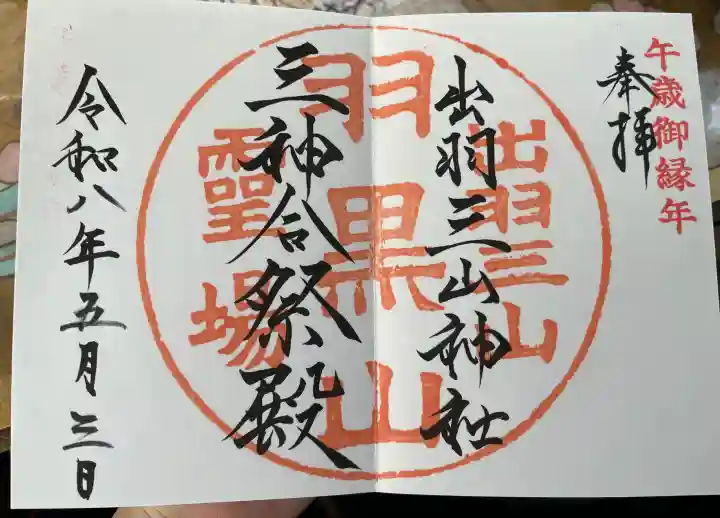 午歳御縁年
奉拝
出羽三山神社
三神合祭殿
令和八年五月三日
出羽三山
羽黒山
霊場